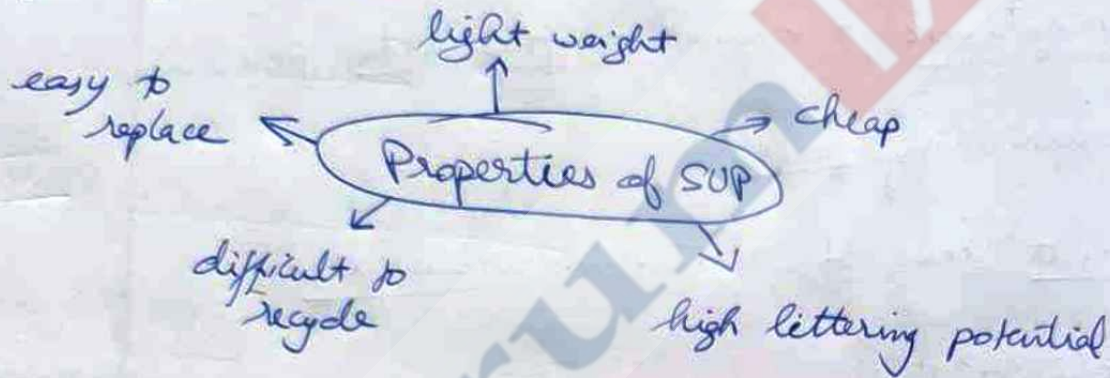 light weight
easy to
replace
cheap
Properties of SUP
difficult to
recycle
high littering potential